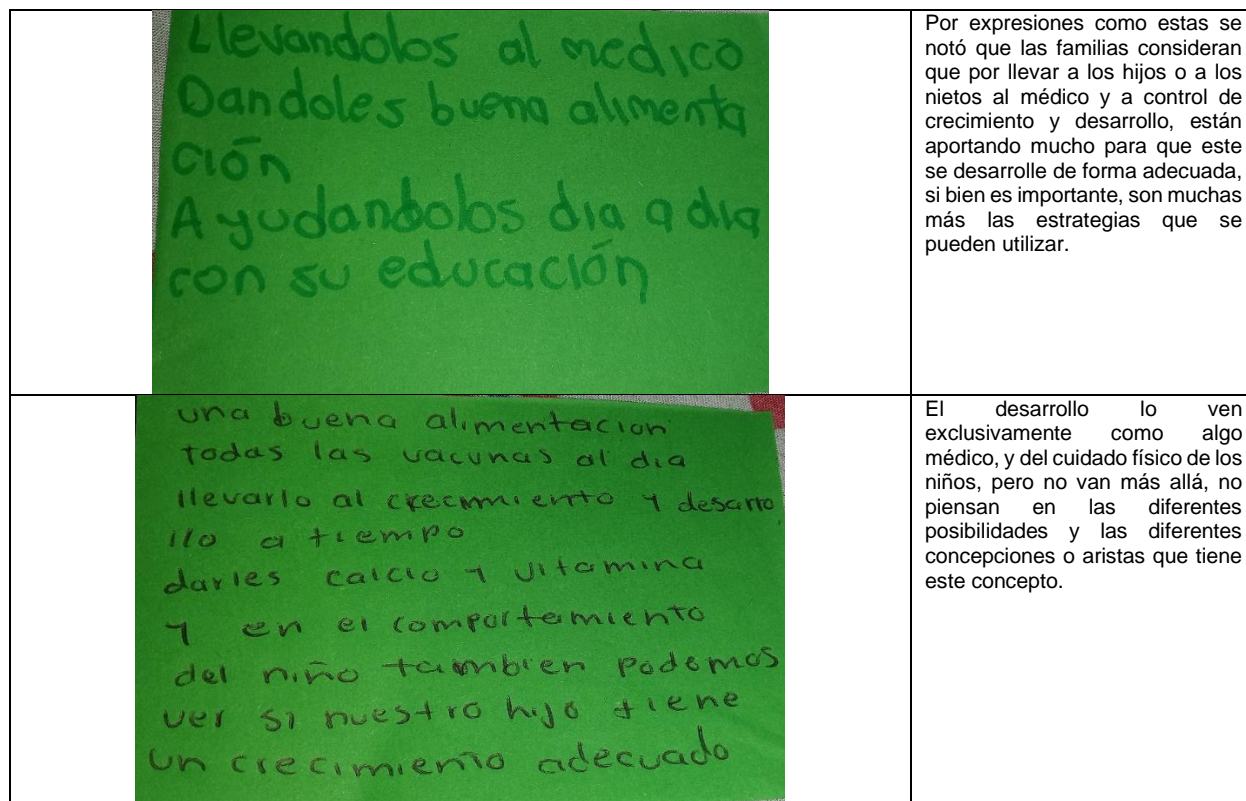 Llevandolos al medico
Dandoles buena alimenta
ción
Ayudandolos dia a dia
con su educación
Por expresiones como estas se
notó que las familias consideran
que por llevar a los hijos o a los
nietos al médico y a control de
crecimiento y desarrollo, están
aportando mucho para que este
se desarrolle de forma adecuada,
si bien es importante, son muchas
más las estrategias que se
pueden utilizar.
una buena alimentacion
todas las vacunas al dia
llevarlo al crecimiento y desarro
llo a tiempo
darles calcio y vitamina
y en el comportamiento
del niño tambien podemos
ver si nuestro hijo tiene
un crecimiento adecuado
El desarrollo lo ven
exclusivamente como algo
médico, y del cuidado físico de los
niños, pero no van más allá, no
piensan en las diferentes
posibilidades y las diferentes
concepciones o aristas que tiene
este concepto.